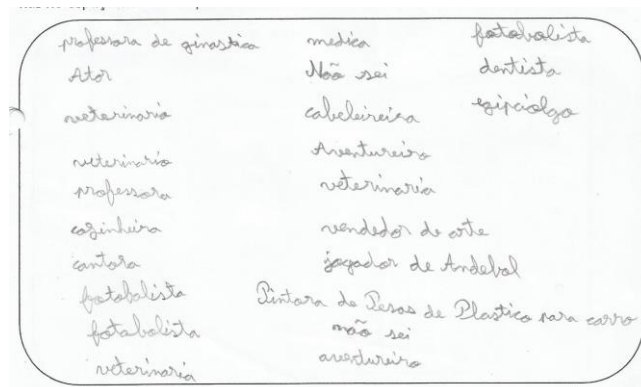 professora de ginastica
Ator
veterinaria
veterinario
professora
cozinheira
cantora
fotobolista
fotabolista
veterinaria
medica
Não sei
cabeleireira
Aventureiro
veterinaria
vendedor de arte
jogador de Andebol
Pintora de Pesas de Plastico para carro
não sei
aventureiro
fotobolista
dentista
egipciolgo